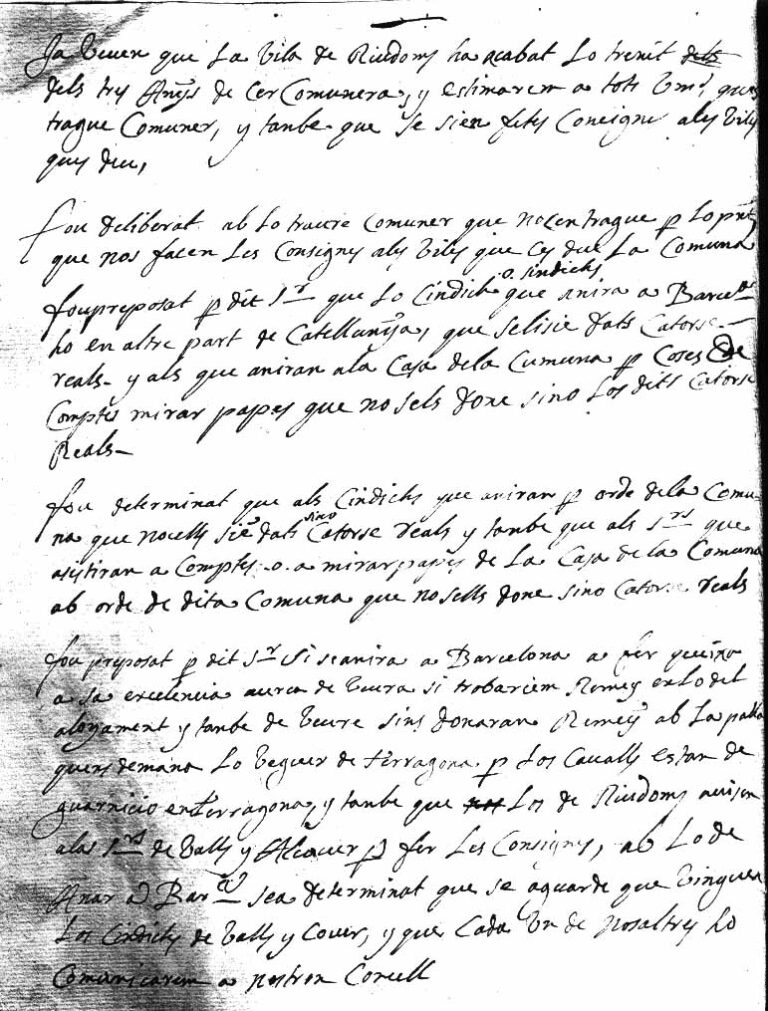 Ja veuen que la vila de Riudoms ha acabat lo trenit dels
dels tres Anys de cer Comunera, y estimarem a tots vms. que
trague Comuner, y tambe que se sien fetes Consignes a les viles
quens deu,
fou deliberat ab lo traure Comuner que nocen trague p lo pnt
que nos facen les Consignes ales viles que es deu la Comuna
fou preposat p dit Sr que lo Cindich o. sindichs que anira a Barcena
ho en altre part de Catellunya, que selisie dats Catorse
reals y als que aniran ala Casa dela Cumuna p Coses de
Comptes mirar papes que no sels done sino los dits Catorse
Reals
fou determinat que als Cindichs que aniran p orde dela Comu
na que nocells sie dats sino Catorse reals y tambe que als Srs que
asistiran a Comptes .o. a mirar papes de la Casa de la Comuna
ab orde de dita Comuna que no sells done sino Catorse reals
fou preposat p dit Sr si se anira a Barcelona a fer queixa
a sa excelencia aserca de veura si trobariem Remey en lo del
alogament y tambe de veure sins donaran Remey ab la palla
quens demana lo veguer de Terragona p los Cavalls estan de
guarnicio en Terragona, y tambe que los de Riudoms avisen
als Srs de Valls y Alcover p fer les Consignes, ab lo de
Anar a Barna sea determinat que se aguarde que vinguen
los Cindichs de Valls y Cover, y que Cada un de nosaltres ho
Comunicarem a nostron Concell